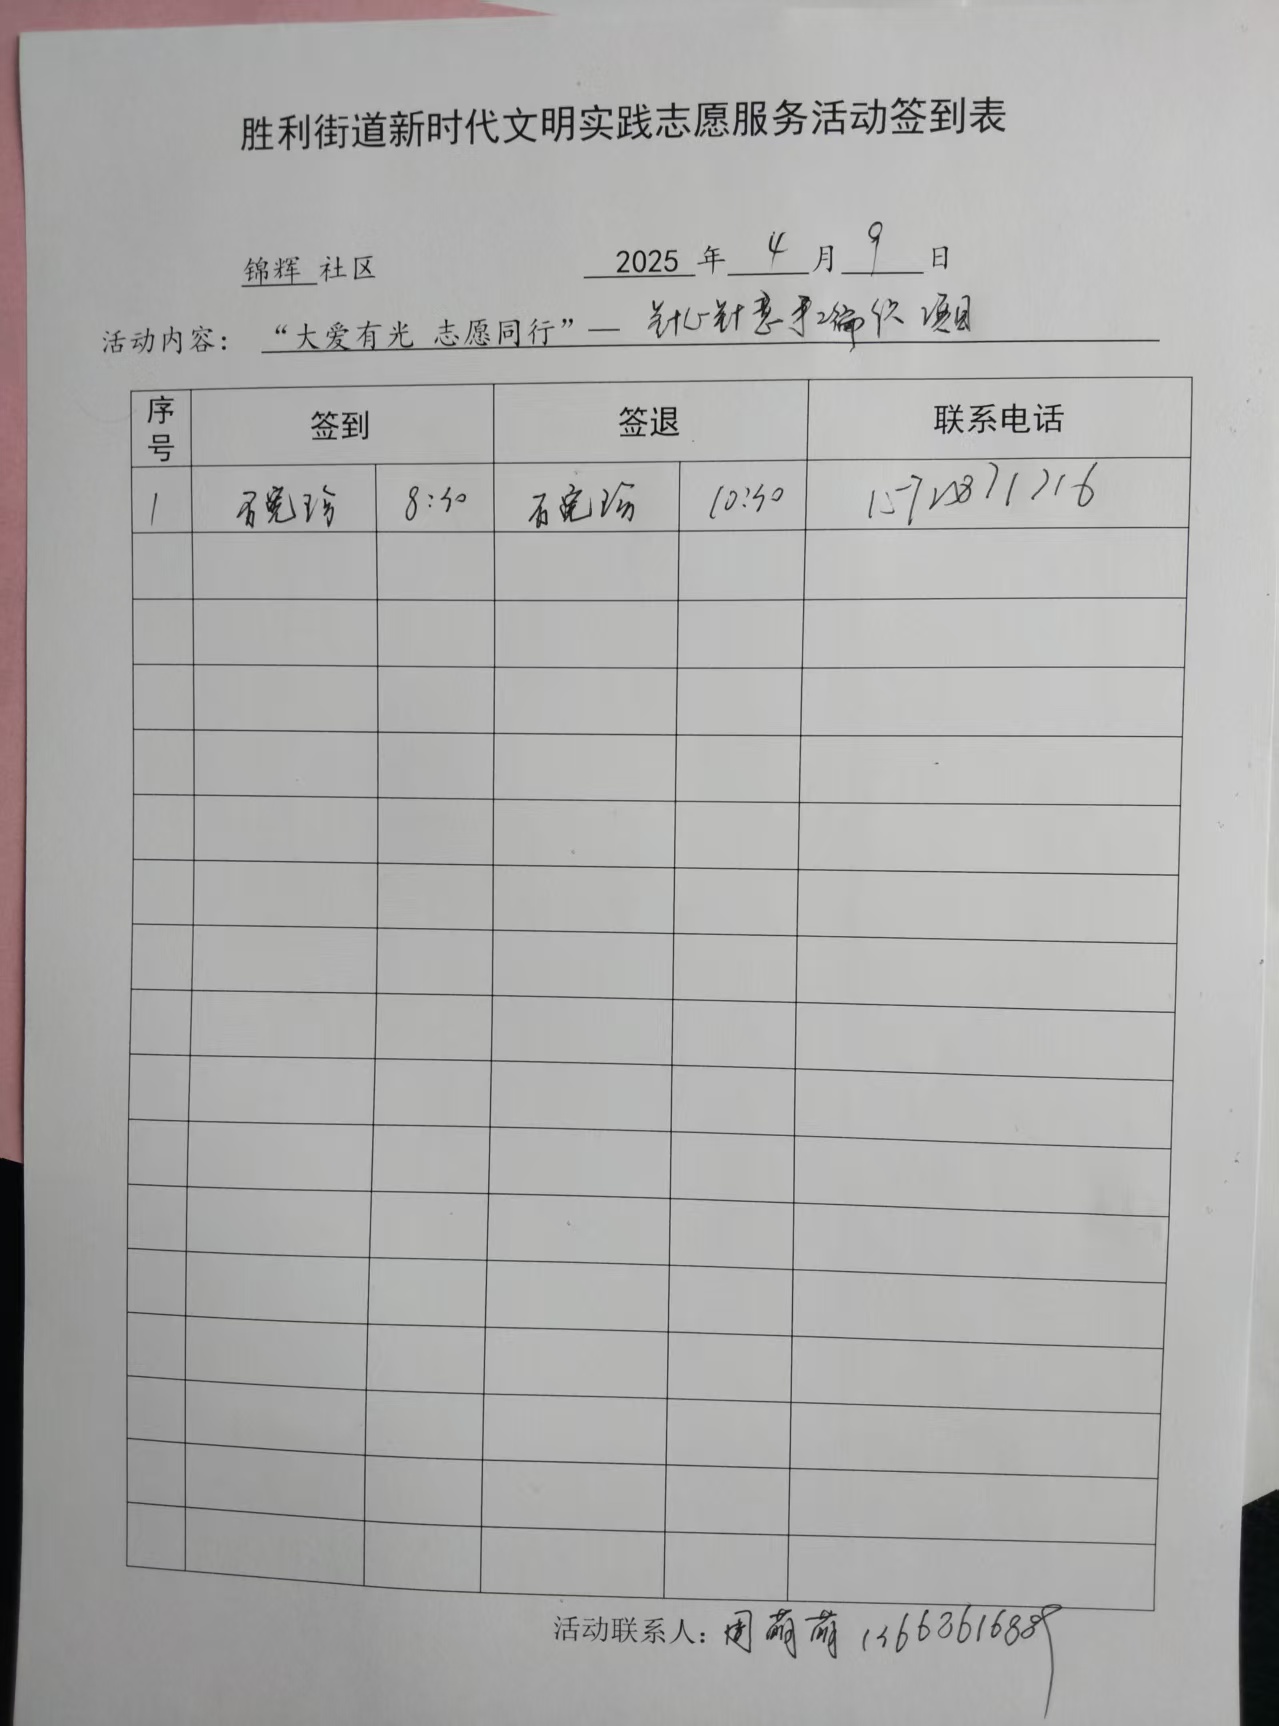 胜利街道新时代文明实践志愿服务活动签到表
锦辉 社区 2025 年 4 月 9 日
活动内容：“大爱有光 志愿同行”— 针心针意手工编织项目
序号 签到 签退 联系电话
1 8:30 10:30
活动联系人：周萌萌